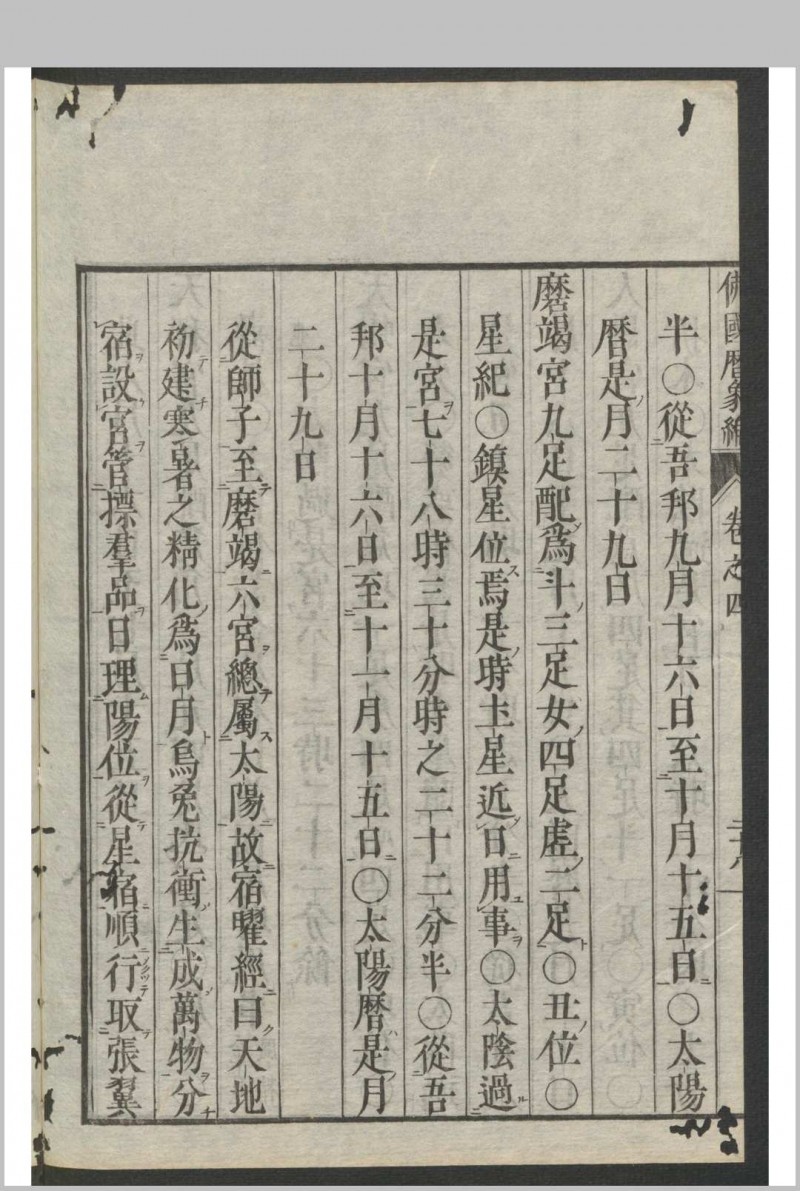 佛國暦象編 卷之四 二十八
半〇從吾邦九月十六日至十月十五日〇太陽
暦是月二十九日
磨竭宮九足配爲斗三足女四足虚二足〇丑位〇
星紀〇鎮星位焉是時土星近日用事〇太陰過
是宮七十八時三十分時之二十二分半〇從吾
邦十月十六日至十一月十五日〇太陽暦是月
二十九日
從師子至磨竭六宮總屬太陽故宿曜經曰天地
初建寒暑之精化爲日月烏兎抗衡生成萬物分
宿設宮管摽羣品日理陽位從星宿順行取張翼